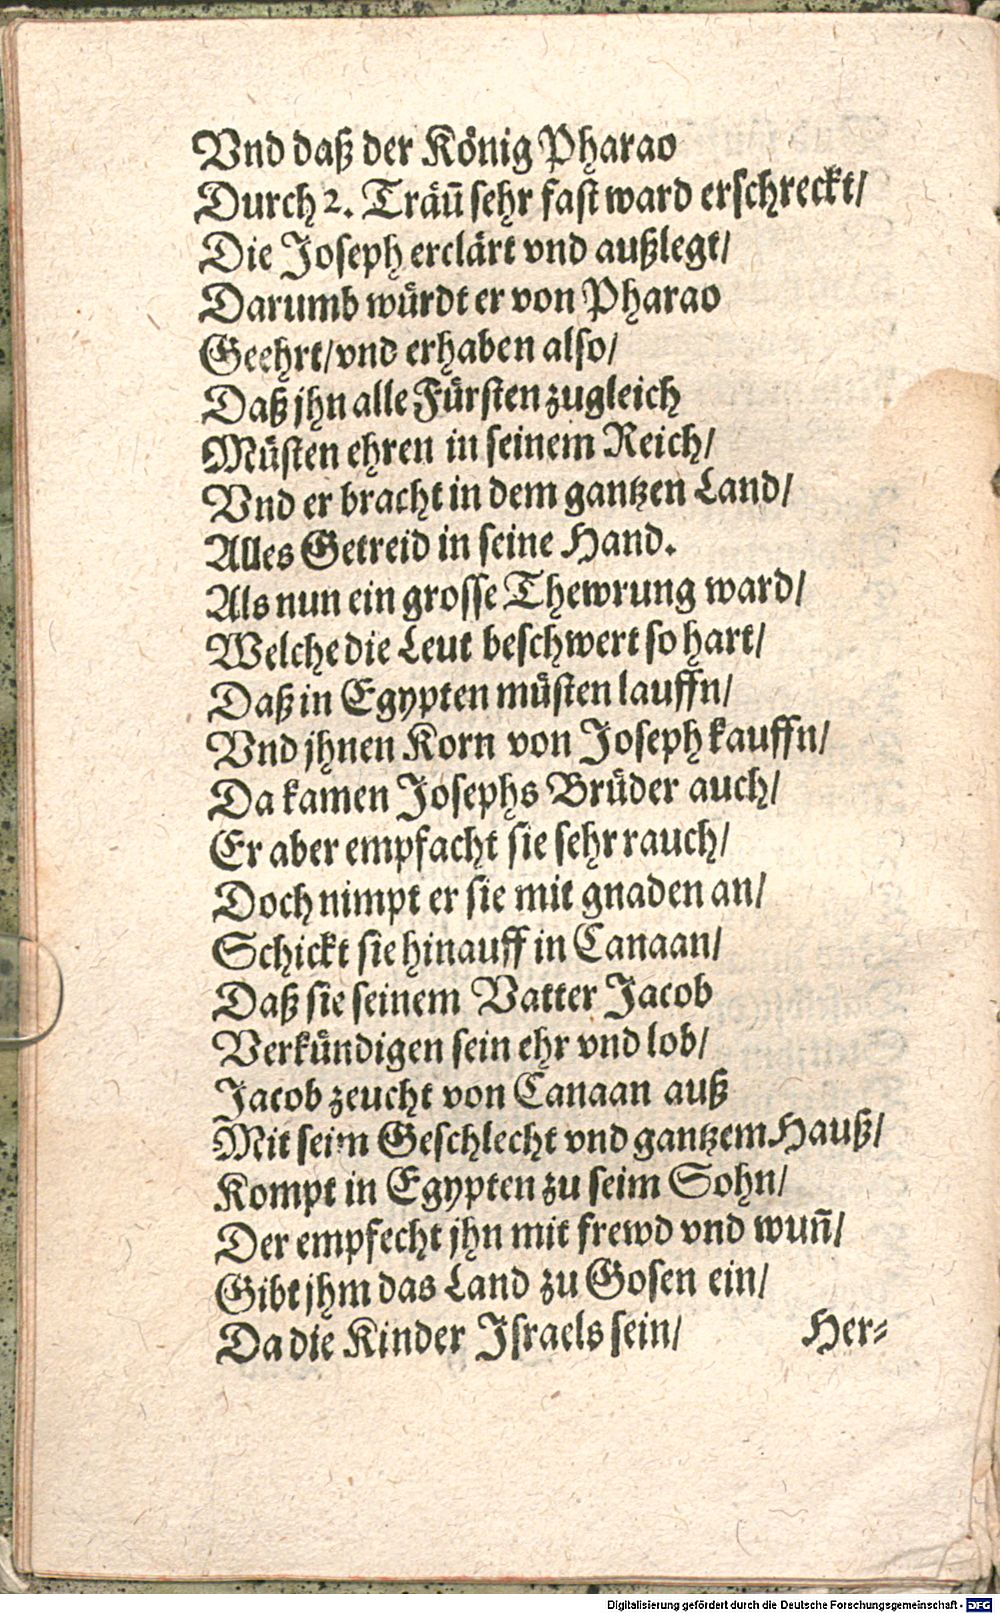 Vnd daß der König Pharao
Durch 2. Träū sehr fast ward erschreckt/
Die Joseph erclärt vnd außlegt/
Darumb würdt er von Pharao
Geehrt/ vnd erhaben also/
Daß jhn alle Fürsten zugleich
Müsten ehren in seinem Reich/
Vnd er bracht in dem gantzen Land/
Alles Getreid in seine Hand.
Als nun ein grosse Thewrung ward/
Welche die Leut beschwert so hart/
Daß in Egypten müsten lauffn/
Vnd jhnen Korn von Joseph kauffn/
Da kamen Josephs Brüder auch/
Er aber empfacht sie sehr rauch/
Doch nimpt er sie mit gnaden an/
Schickt sie hinauff in Canaan/
Daß sie seinem Vatter Jacob
Verkündigen sein ehr vnd lob/
Jacob zeucht von Canaan auß
Mit seim Geschlecht vnd gantzem Hauß/
Kompt in Egypten zu seim Sohn/
Der empfecht jhn mit frewd vnd wun̄/
Gibt jhm das Land zu Gosen ein/
Da die Kinder Israels sein/ Her-
Digitalisierung gefördert durch die Deutsche Forschungsgemeinschaft - DFG